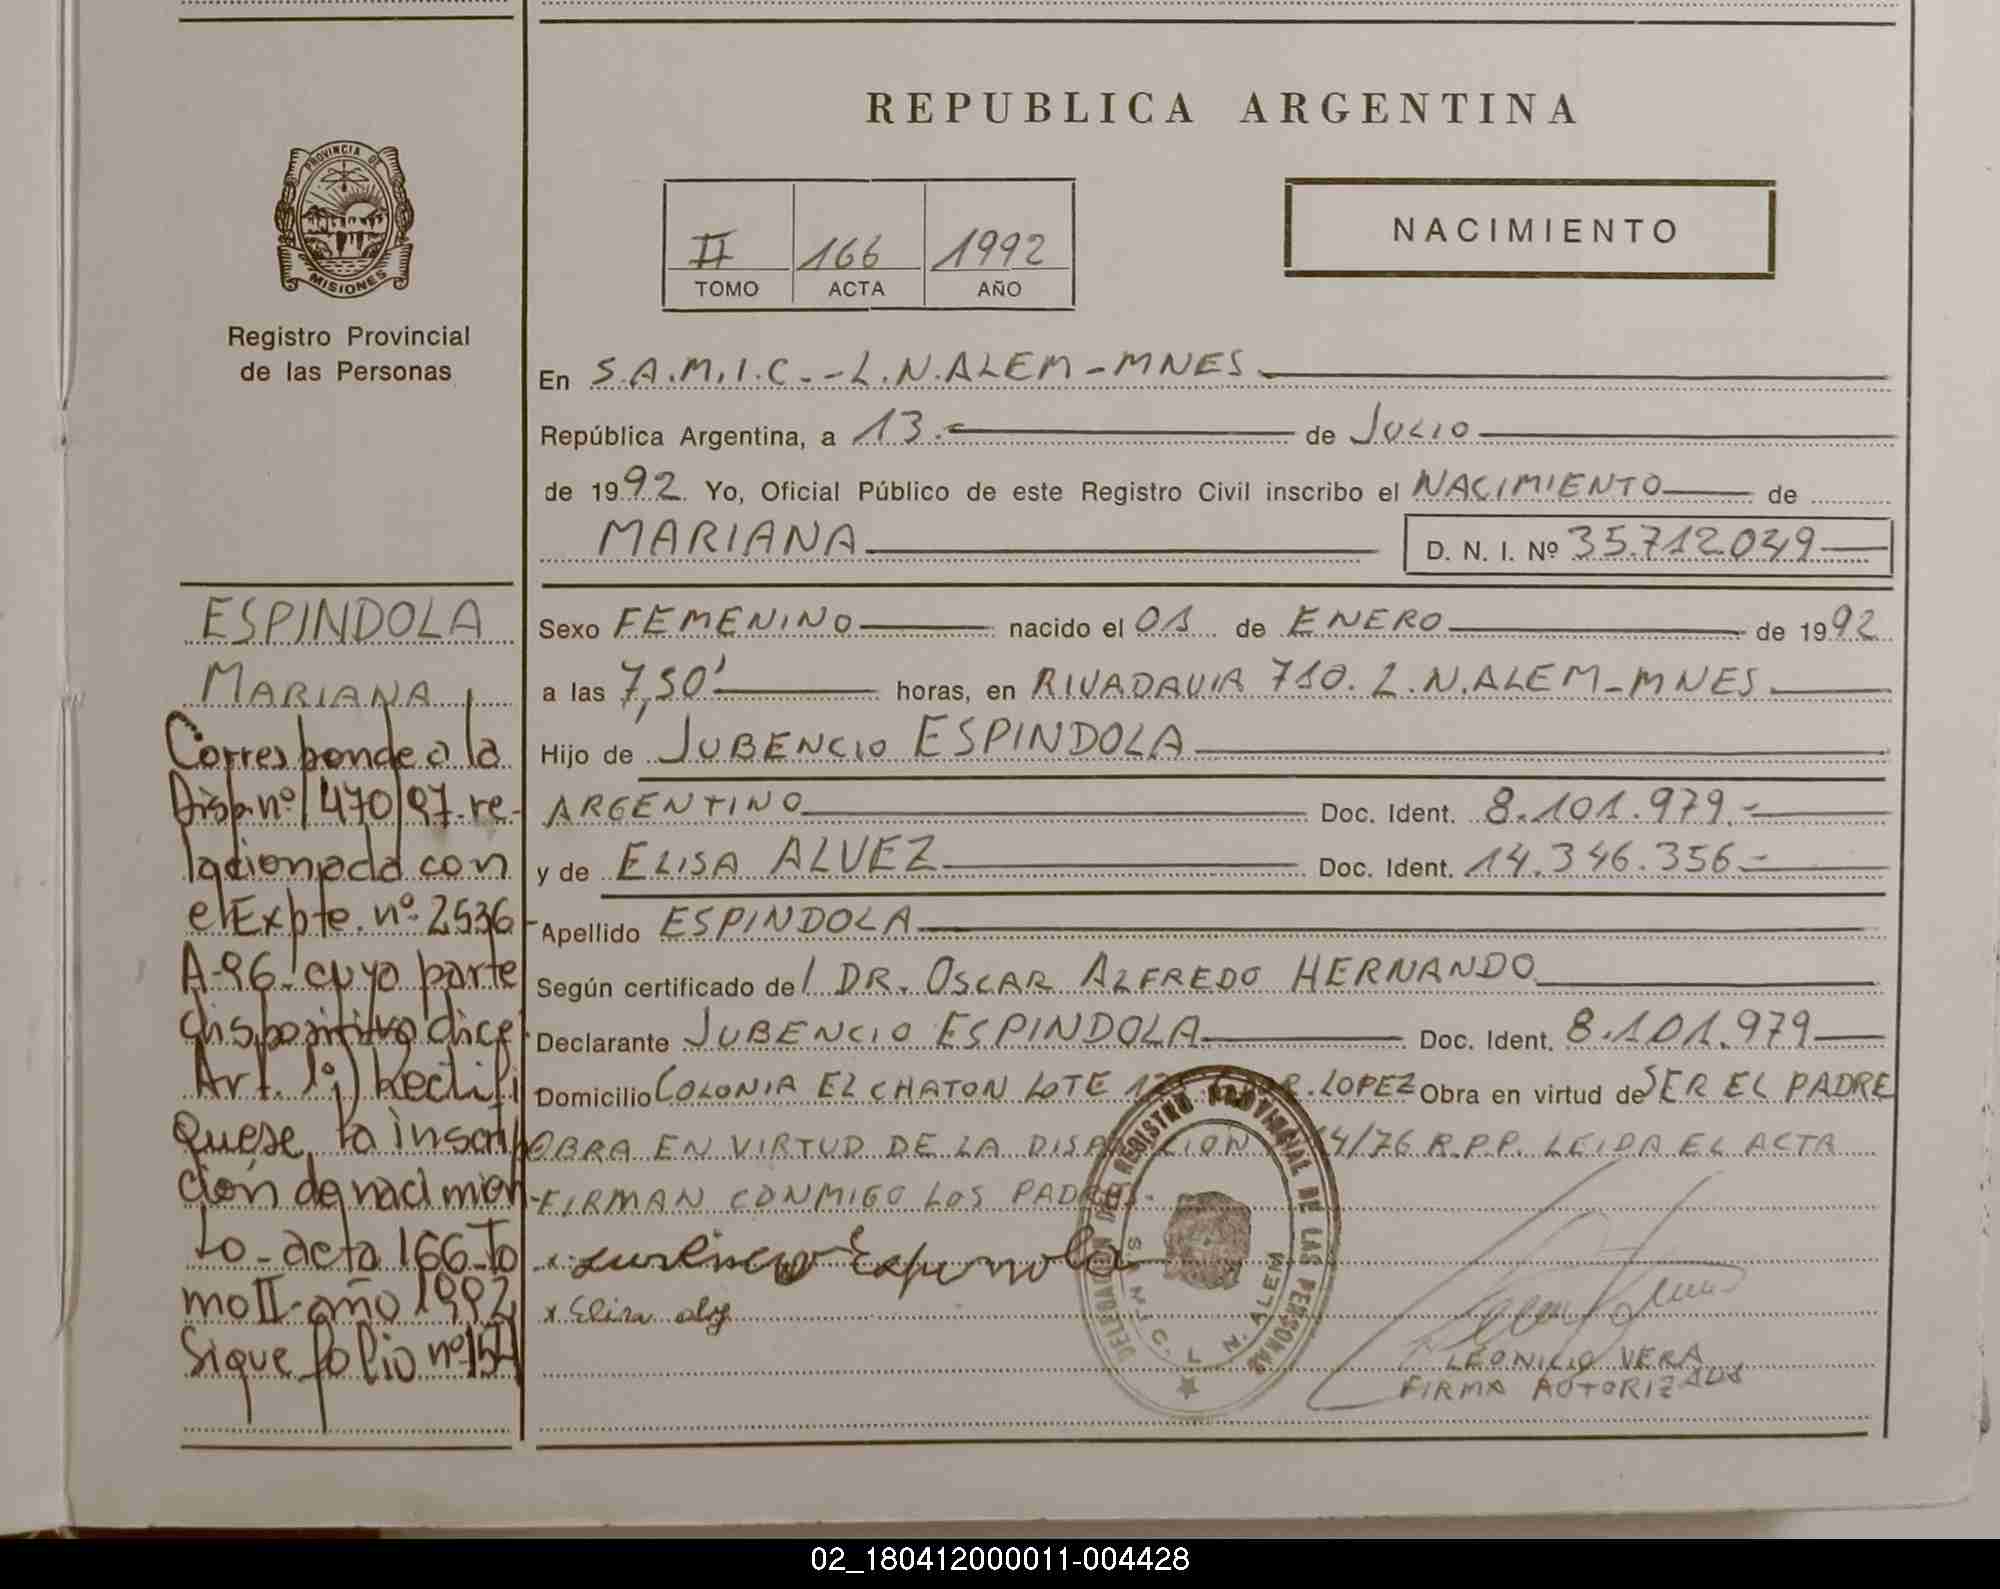 REPUBLICA ARGENTINA
PROVINCIA DE MISIONES
Registro Provincial
de las Personas
II 166 1992
TOMO ACTA AÑO
NACIMIENTO
En S.A.M.I.C.-L.N.ALEM-MNES
República Argentina, a 13.- de JULIO
de 1992. Yo, Oficial Público de este Registro Civil inscribo el NACIMIENTO de
MARIANA D. N. I. Nº 35.712.049
Sexo FEMENINO nacido el 01 de ENERO de 1992
a las 7,50' horas, en RIVADAVIA 710. L.N.ALEM-MNES
Hijo de JUBENCIO ESPINDOLA
ARGENTINO Doc. Ident. 8.101.979.-
y de ELISA ALVEZ Doc. Ident. 14.346.356-
Apellido ESPINDOLA
Según certificado del DR. OSCAR ALFREDO HERNANDO
Declarante JUBENCIO ESPINDOLA Doc. Ident. 8.101.979
Domicilio COLONIA EL CHATON LOTE LOPEZ Obra en virtud de SER EL PADRE
OBRA EN VIRTUD DE LA 4/76 R.P.P. LEIDA EL ACTA
FIRMAN CONMIGO LOS
x Elisa
LEONICIO VERA
FIRMA AUTORIZADA
DELEGACION DEL REGISTRO PROVINCIAL DE LAS PERSONAS
S.A.M.I.C. L. N. ALEM
ESPINDOLA
MARIANA
Corresponde a la
Disp. nº 1470/97 re-
lacionada con
el Expte. nº 2536-
A-96. cuyo parte
dispositivo dice:
Art. 1º) Rectifi
quese la inscrip
ción de nacimien-
to-acta 166-To
mo II-año 1992
Sigue folio nº 154
02_180412000011-004428